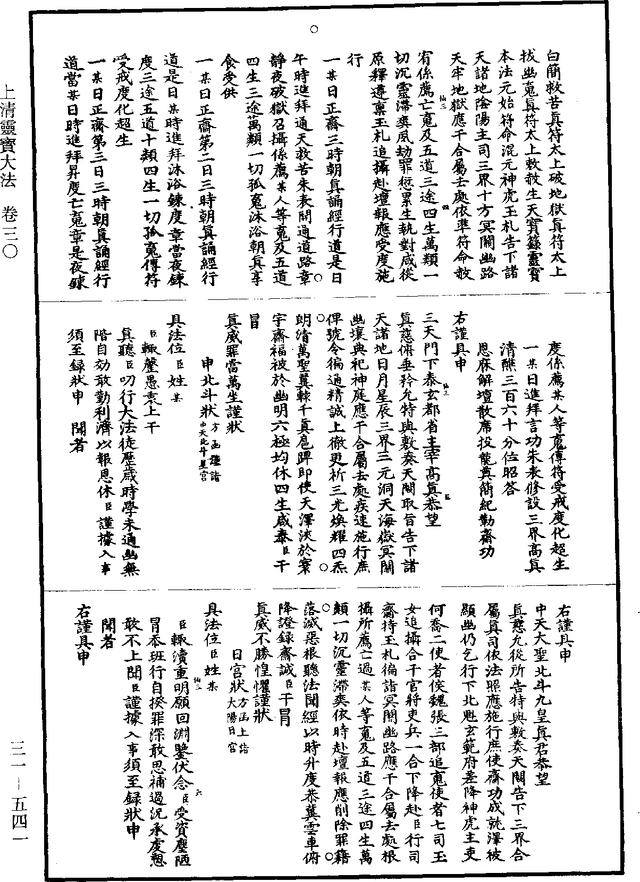 上清靈寶大法　卷三〇
三一—五四一
白簡救苦真符太上破地獄真符太上
拔幽魂真符太上敕救生天寶籙靈寶
本法元始符命混元神虎玉札告下諸
天諸地陰陽主司三界十方冥關幽路
天牢地獄應干合屬去處依準符命救
宥係薦亡魂及五道三途四生萬類一
切沉靈滯爽夙劫罪愆累生執對咸從
原釋遵稟玉札追攝赴壇報應受度施
行
一某日正齋三時朝真誦經行道是日
午時進拜通天救苦朱表開通道路章
靜夜破獄召攝係薦某人等魂及五道
四生三途萬類一切孤魂沐浴朝真享
食受供
一某日正齋第二日三時朝真誦經行
道是日某時進拜沐浴鍊度章當夜鍊
度三途五道十類四生一切孤魂傳符
受戒度化超生
一某日正齋第三日三時朝真誦經行
道當某日時進拜昇度亡魂章是夜鍊
度係薦某人等魂傳符受戒度化超生
一某日進拜言功朱表修設三界高真
清醮三百六十分位昭答
恩庥解壇散席投龍奠簡紀勤齋功
右謹具申
三天門下泰玄都省主宰高真恭望
真慈俯垂矜允特與敷奏天闕取旨告下諸
天諸地日月星辰三界三元洞天海嶽冥關
幽壤典祀神庭應干合屬去處疾速施行庶
俾號令徧通精誠上徹更祈三光煥耀四炁
朗清萬聖翼棘千真扈蹕即使天澤浹於寰
宇齋福被於幽明六極均休四生咸泰臣干
冒
真威罪當萬坐謹狀
申北斗狀方函謹詣中天北斗星宮
具法位臣姓某
臣輒罄愚衷上干
真聽臣叨行大法徒歷歲時學未通幽無
階自効敢勤利濟以報恩休臣謹據入事
須至錄狀申　聞者
右謹具申
中天大聖北斗九皇真君恭望
真慈允從所告特與敷奏天闕告下三界合
屬真司依法照應施行庶使齋功成就澤被
顯幽仍乞行下北魁玄範府差降神虎主吏
何喬二使者侯魏張三部追魂使者七司玉
女追攝合干官將吏兵一合下降赴臣行司
齋持玉札徧詣冥關幽路應干合屬去處根
攝所薦亡過某人等魂及五道三途四生萬
類一切沉靈滯爽依時赴壇報應削除罪籍
落滅惡根聽法聞經以時升度恭冀雲車俯
降證錄齋誠臣干冒
真威不勝惶懼謹狀
日宮狀方函上詣太陽日宮
具法位臣姓某
臣輒瀆重明願回淵鑒伏念臣受資塵陋
冒忝班行自揆罪深敢思補過況承虔懇
敢不上聞臣謹據入事須至錄狀申
聞者
右謹具申